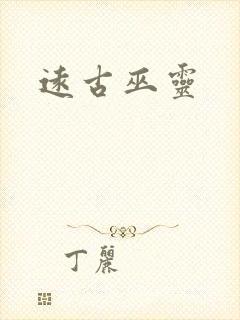 遠古巫靈
丁麗